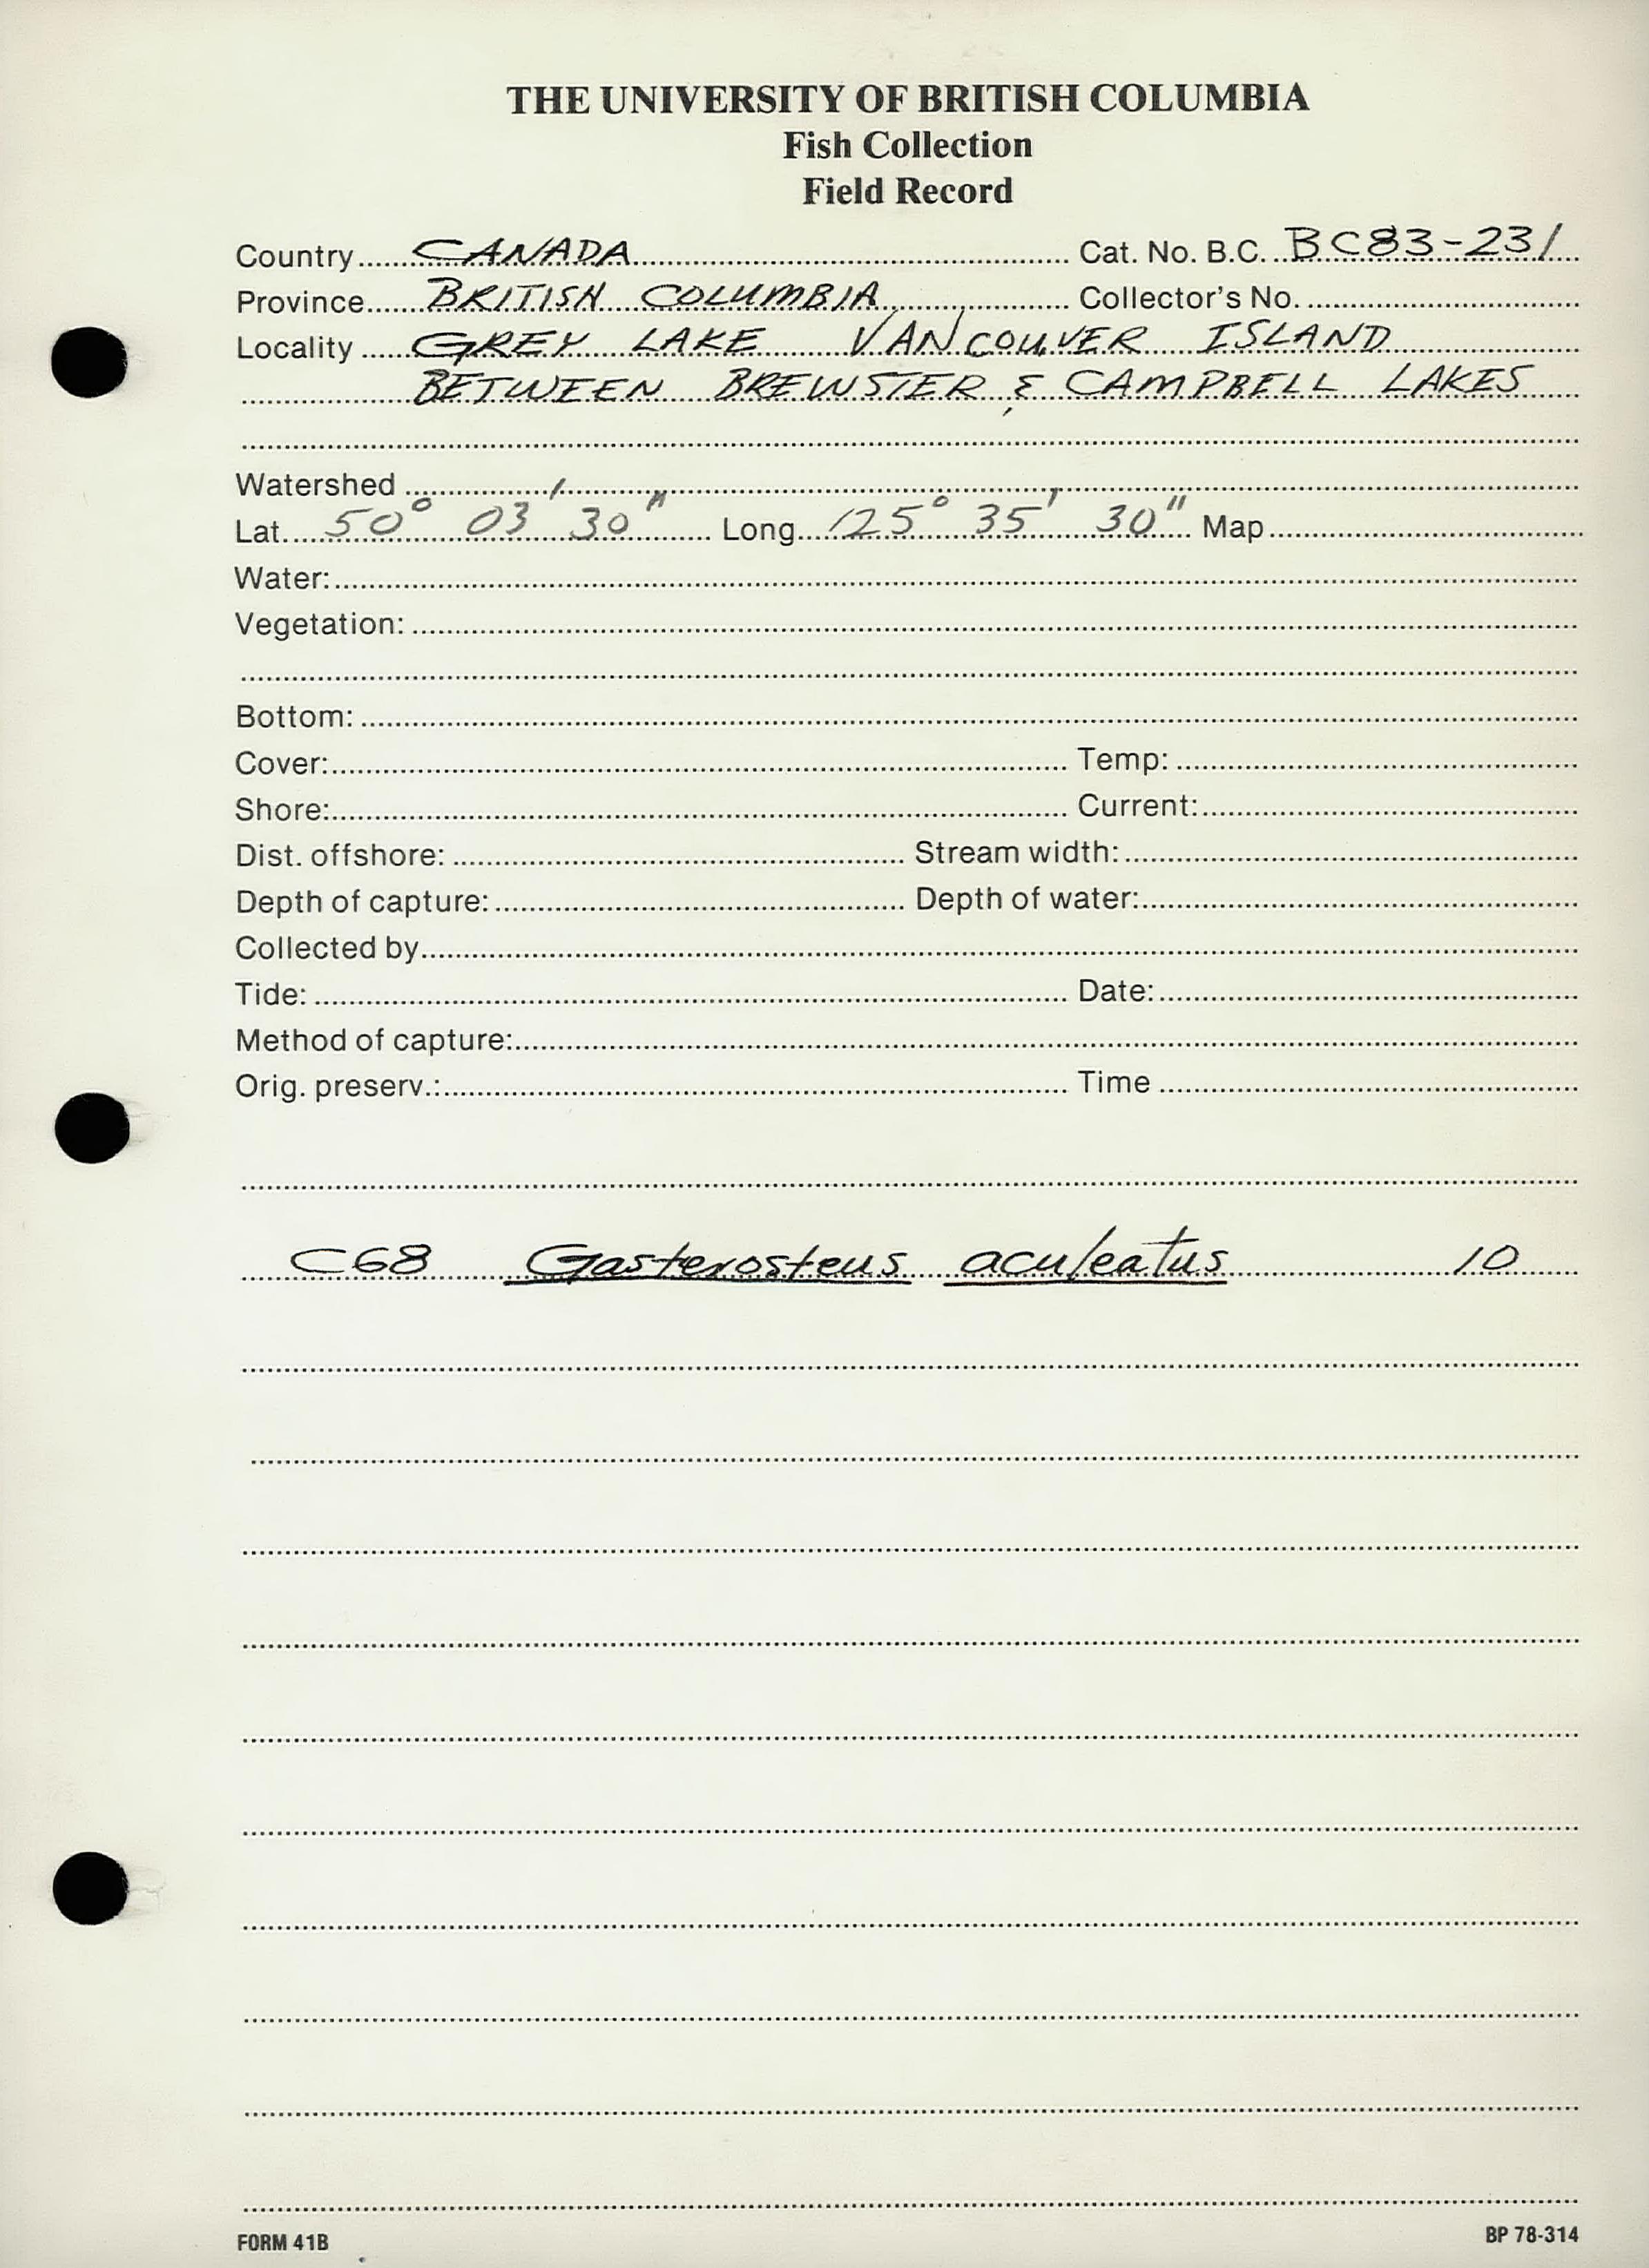 THE UNIVERSITY OF BRITISH COLUMBIA
Fish Collection
Field Record
Country CANADA Cat. No. B.C. BC83-231
Province BRITISH COLUMBIA Collector's No.
Locality GREY LAKE VANCOUVER ISLAND
BETWEEN BREWSTER & CAMPBELL LAKES
Watershed
Lat. 50° 03' 30" Long. 125° 35' 30" Map
Water:
Vegetation:
Bottom:
Cover: Temp:
Shore: Current:
Dist. offshore: Stream width:
Depth of capture: Depth of water:
Collected by
Tide: Date:
Method of capture:
Orig. preserv.: Time
C68 Gasterosteus aculeatus 10
FORM 41B BP 78-314